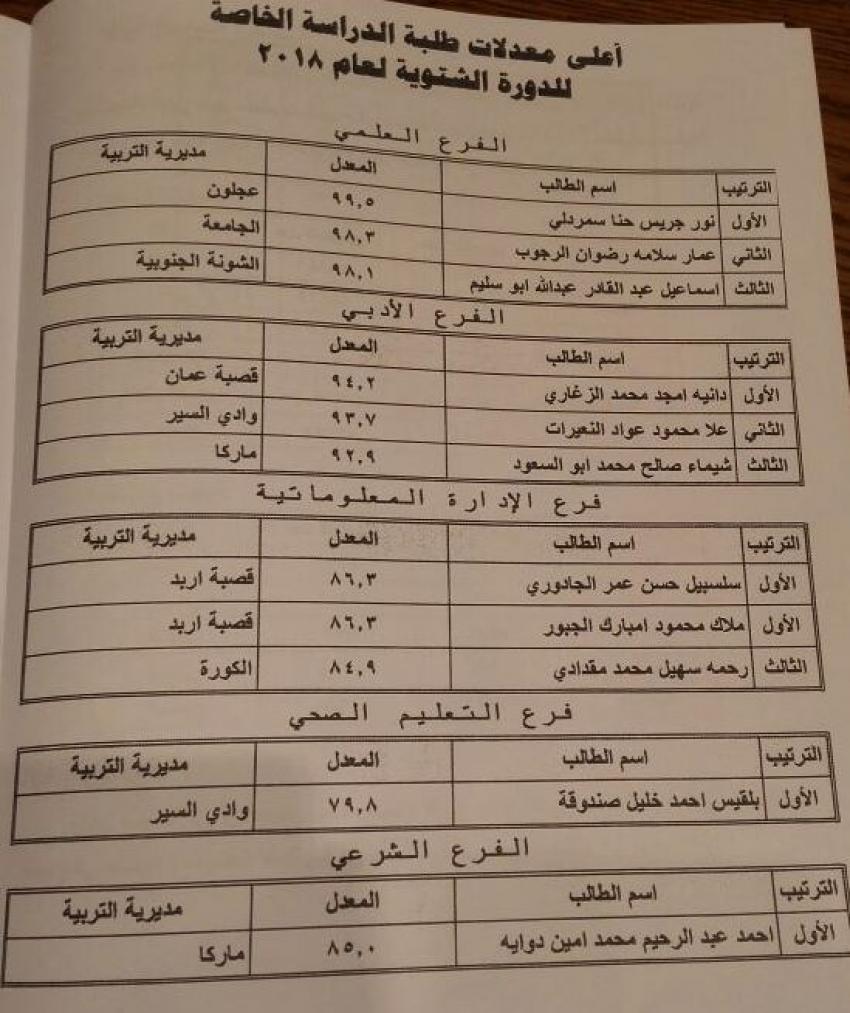 أعلى معدلات طلبة الدراسة الخاصة
للدورة الشتوية لعام ٢٠١٨
الفرع العلمي
الترتيب اسم الطالب المعدل مديرية التربية
الأول نور جريس حنا سمردلي ٩٩,٥ عجلون
الثاني عمار سلامه رضوان الرجوب ٩٨,٣ الجامعة
الثالث اسماعيل عبد القادر عبدالله ابو سليم ٩٨,١ الشونة الجنوبية
الفرع الأدبي
الترتيب اسم الطالب المعدل مديرية التربية
الأول دانيه امجد محمد الزغاري ٩٤,٢ قصبة عمان
الثاني علا محمود عواد النعيرات ٩٣,٧ وادي السير
الثالث شيماء صالح محمد ابو السعود ٩٢,٩ ماركا
فرع الإدارة المعلوماتية
الترتيب اسم الطالب المعدل مديرية التربية
الأول سلسبيل حسن عمر الجادوري ٨٦,٣ قصبة اربد
الأول ملاك محمود امبارك الجبور ٨٦,٣ قصبة اربد
الثالث رحمه سهيل محمد مقدادي ٨٤,٩ الكورة
فرع التعليم الصحي
الترتيب اسم الطالب المعدل مديرية التربية
الأول بلقيس احمد خليل صندوقة ٧٩,٨ وادي السير
الفرع الشرعي
الترتيب اسم الطالب المعدل مديرية التربية
الأول احمد عبد الرحيم محمد امين دوايه ٨٥,٠ ماركا